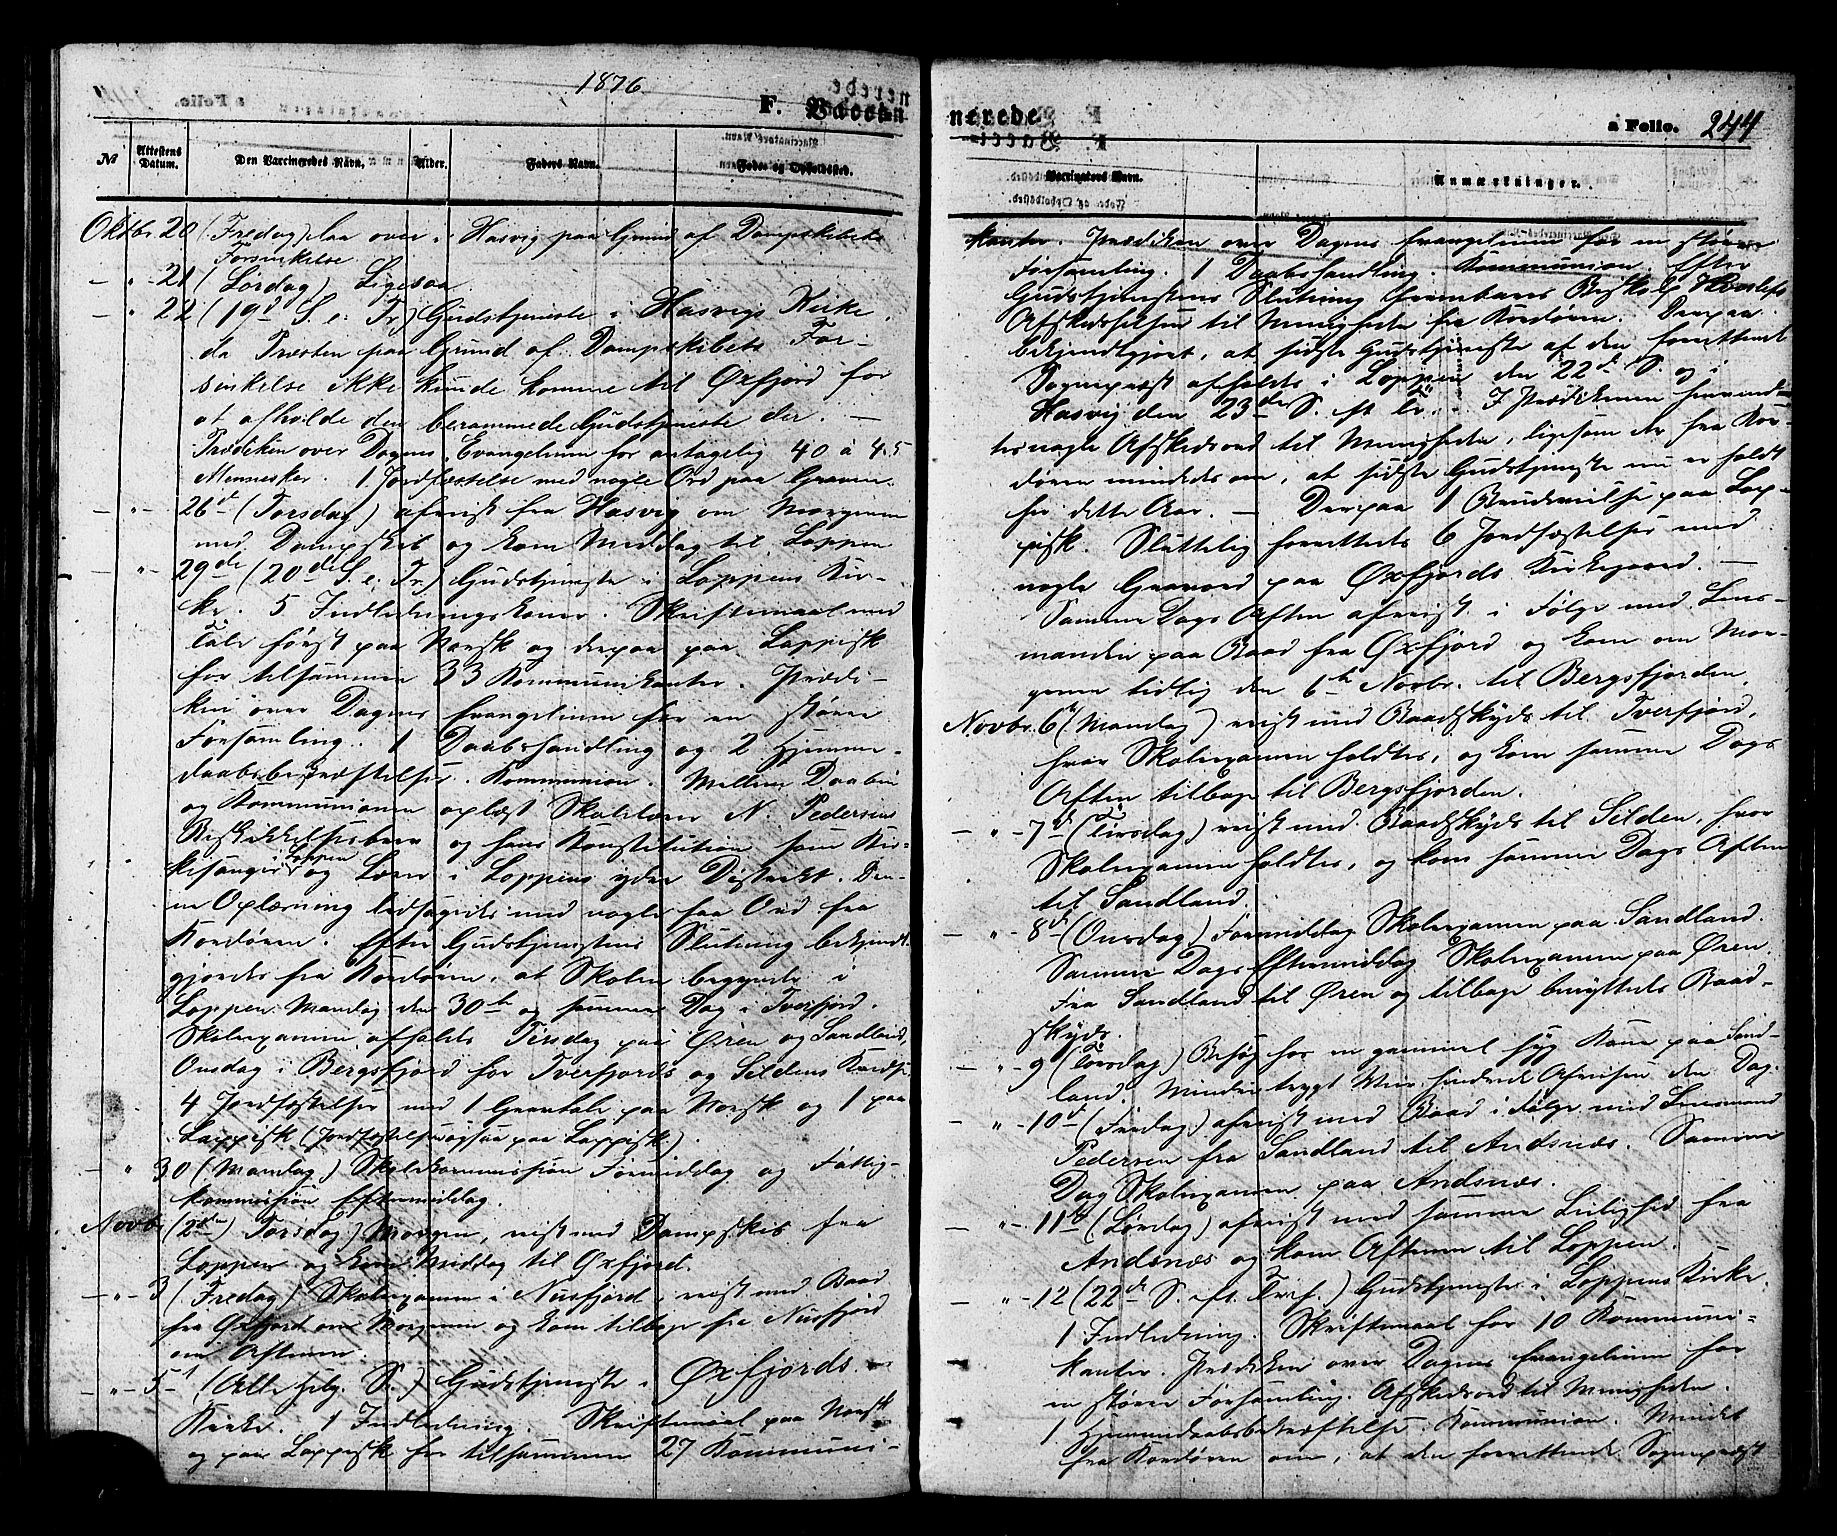 1876.
F. Vaccinerede
No
Attestens Datum.
Den Vaccineredes Navn.
Alder.
Faders Navn.
Føde- og Opholdssted.
Oktbr. 20 (Fredag) laa over i Hasvig paa Grund af Dampskibets
Forsinkelse.
— " - 21 (Lørdag) Ligesaa.
— " 22 (19d S. e. Tr.) Gudstjeneste i Hasvigs Kirke,
da Præsten paa Grund af Dampskibets For-
sinkelse ikke kunde komme til Øxfjord for
at afholde den berammede Gudstjeneste der. —
Prædiken over Dagens Evangelium for antagelig 40 à 45
Mennesker. 1 Jordfæstelse med nogle Ord paa Graven.
— " - 26d (Torsdag) afreist fra Hasvig om Morgenen
med Dampskib og kom Middag til Loppen
" - 29de (20de S. e. Tr.) Gudstjeneste i Loppens Kir-
ke. 5 Indledningskoner. Skriftemaal med
Tale først paa Norsk og derpaa paa Lappisk
for tilsammen 33 Kommunikanter. Prædi-
ken over Dagens Evangelium for en større
Forsamling. 1 Daabshandling og 2 Hjemme-
daabsbekræftelser. Kommunion. Mellem Daaben
og Kommunionen oplæst Skolelærer N. Pedersens
Beskikkelsesbrev og hans Konstitution som Kir-
kesanger Loppen og Lærer i Loppens ydre Distrikt. Den-
ne Oplæsning ledsagedes med nogle faa Ord fra
Kordøren. Efter Gudstjenestens Slutning bekjendt-
gjordes fra Kordøren, at Skolen begynder i
Loppen Mandag den 30te og samme Dag i Tverfjord.
Skolexamen afholdes Tirsdag paa Øren og Sandland,
Onsdag i Bergsfjord for Tverfjords og Sildens
4 Jordfæstelser med 1 Gravtale paa Norsk og 1 paa
Lappisk (Jordfæstelse ogsaa paa Lappisk).
— " 30 (Mandag) Skolekommission Formiddag og Fattig-
kommission Eftermiddag.
Novbr. (2den) Torsdag) Morgen, reist med Dampskib fra
Loppen og kom Middag til Øxfjord.
— " - 3 (Fredag) Skolexamen i Nusfjord, reist med Baad
fra Øxfjord om Morgenen og kom tilbage fra Nusfjord
om Aftenen.
— " - 5t (Alle Helg. S.) Gudstjeneste i Øxfjords
Kirke. 1 Indledning. Skriftemaal paa Norsk
og paa Lappisk for tilsammen 27 Kommuni-
nerede
a Folio. 244
Vaccinators Navn.
Anmærkninger.
kanter. Prædiken over Dagens Evangelium for en større
Forsamling. 1 Daabshandling. Kommunion. Efter
Gudstjenestens Slutning frembares Biskop Hvoslefs
Afskedshilsen til Menigheden fra Kordøren. Derpaa
bekjendtgjort, at sidste Gudstjeneste af den forrettende
Sognepræst afholdes i Loppen den 22de S. og i
Hasvig den 23de S. eft. Tr. I Prædikenen henvend-
tes nogle Afskedsord til Menigheden, ligesom der fra Kor-
døren mindedes om, at sidste Gudstjeneste nu er holdt
for dette Aar. — Derpaa 1 Brudevielse paa Lap-
pisk. Sluttelig forrettedes 6 Jordfæstelser med
nogle Gravord paa Øxfjords Kirkegaard. —
Samme Dags Aften afreist i Følge med Lens-
manden paa Baad fra Øxfjord og kom om Mor-
genen tidlig den 6te Novbr. til Bergsfjorden.
Novbr. 6te (Mandag) reist med Baadskyds til Tverfjord,
hvor Skolexamen holdtes, og kom samme Dags
Aften tilbage til Bergsfjorden.
— " - 7d (Tirsdag) reist med Baadskyds til Silden, hvor
Skolexamen holdtes, og kom samme Dags Aften
til Sandland.
— " - 8d (Onsdag) Formiddag Skolexamen paa Sandland.
Samme Dags Eftermiddag Skolexamen paa Øren.
Fra Sandland til Øren og tilbage benyttedes Baad-
skyds.
— " - 9 (Torsdag) Besøg hos en gammel syg Kone paa Sand-
land. Mindre trygt Veir hindrede Afreisen den Dag.
" - 10d (Fredag) afreist med Baad i Følge med Lensmand
Pedersen fra Sandland til Andsnæs. Samme
Dag Skolexamen paa Andsnæs.
— " - 11te (Lørdag) afreist med samme Leilighed fra
Andsnæs og kom Aftenen til Loppen.
— " - 12 (22de S. eft. Tref.) Gudstjeneste i Loppens Kirke.
1 Indledning. Skriftemaal for 10 Kommuni-
kanter. Prædiken over Dagens Evangelium for
en større Forsamling. Afskedsord til Menigheden.
1 Hjemmedaabsbekræftelse. Kommunion. Mindet
fra Kordøren om, at den forrettende Sognepræst